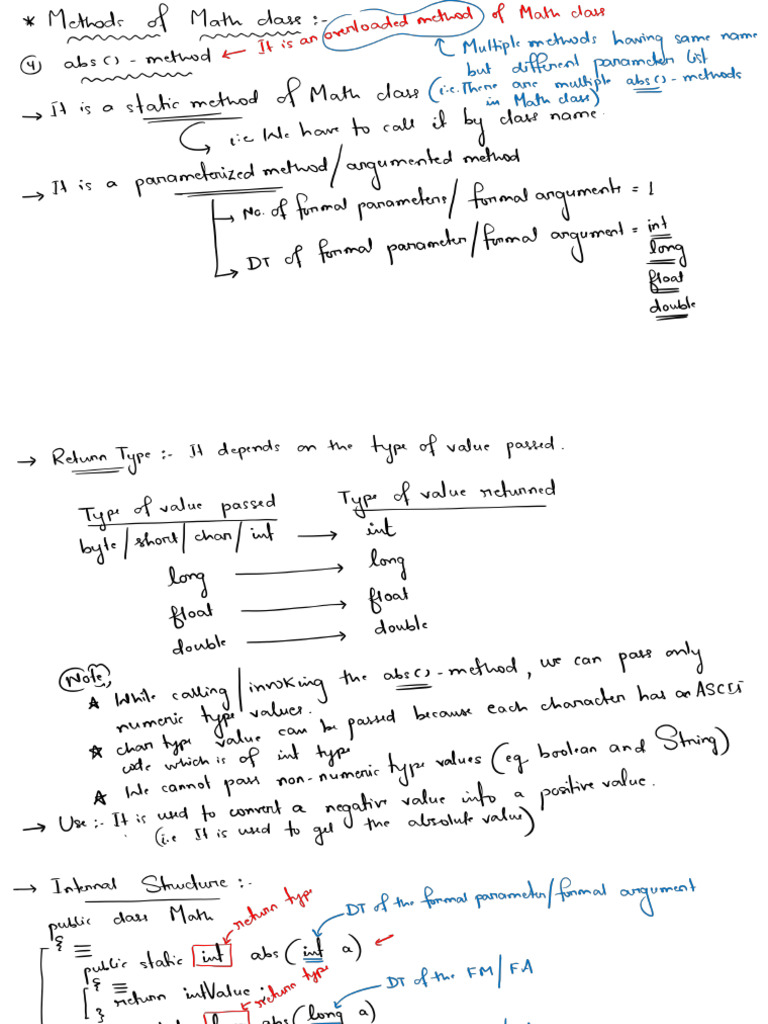 * Methods of Math class :-
④ abs() - method ← It is an overloaded method of Math class
Multiple methods having same name
but different parameter list
(i.e. There are multiple abs() - methods
in Math class)
→ It is a static method of Math class
i.e We have to call it by class name.
→ It is a parameterized method / argumented method
→ No. of formal parameters / formal arguments = 1
→ DT of formal parameter / formal argument = int
long
float
double
→ Return Type :- It depends on the type of value passed.
Type of value passed Type of value returned
byte / short / char / int → int
long → long
float → float
double → double
Note,
* While calling / invoking the abs() - method, we can pass only
numeric type values.
* char type value can be passed because each character has an ASCII
code which is of int type
* We cannot pass non-numeric type values (eg. boolean and String)
→ Use :- It is used to convert a negative value into a positive value.
(i.e It is used to get the absolute value)
→ Internal Structure :-
public class Math
{
return type
DT of the formal parameter / formal argument
public static int abs( int a) ←
{
return intValue ;
}
return type
DT of the FM / FA
abs( long a)